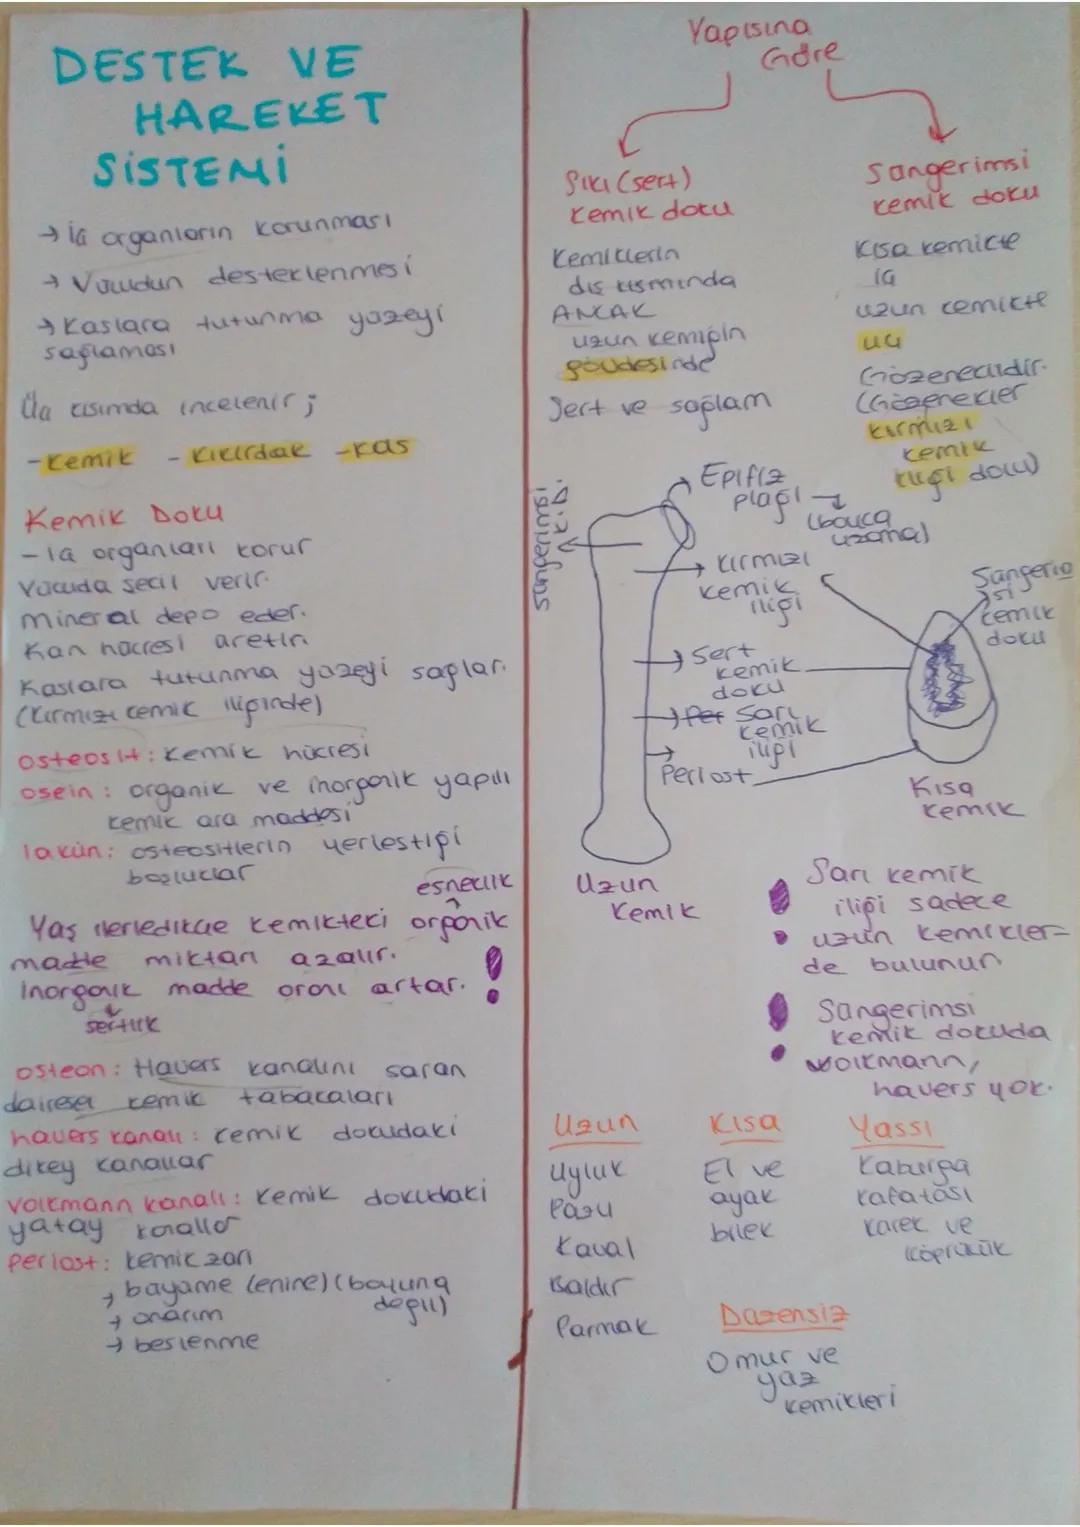 DESTEK VE
HAREKET
SİSTEMİ
→ İç organların korunması
→ Vücudun desteklenmesi
→ Kaslara tutunma yüzeyi
sağlaması
Üç kısımda incelenir;
- Kemik - Kıkırdak - Kas
Kemik Doku
- İç organları korur
Vücuda şekil verir.
Mineral depo eder.
Kan hücresi üretir.
Kaslara tutunma yüzeyi sağlar.
(Kırmızı kemik iliğinde)
osteosit: Kemik hücresi
osein: organik ve inorganik yapılı
kemik ara maddesi
lakün: osteositlerin yerleştiği
boşluklar
esneklik
Yaş ilerledikçe kemikteki organik
madde miktarı azalır.
İnorganik madde oranı artar. !
sertlik
osteon: Havers kanalını saran
dairesel kemik tabakaları
havers kanalı: kemik dokudaki
dikey kanallar
volkmann kanalı: kemik dokudaki
yatay kanallar
Periost: kemik zarı
→ büyüme (enine) (boyuna
değil)
→ onarım
→ beslenme
Yapısına
Göre
Sıkı (sert)
kemik doku
Kemiklerin
dış kısmında
ANCAK
uzun kemiğin
gövdesinde
Sert ve sağlam
Süngerimsi
kemik doku
Kısa kemikte
iç
uzun kemikte
uç
Gözeneklidir.
(Gözenekler
kırmızı
kemik
iliği dolu)
süngerimsi
K.D.
Epifiz
plağı →
(boyca
uzama)
kırmızı
kemik
iliği
Sert
kemik
doku
Per Sarı
kemik
iliği
Periost
Uzun
Kemik
Süngerim
si
kemik
doku
Kısa
kemik
! Sarı kemik
iliği sadece
uzun kemikler-
de bulunur.
! Süngerimsi
kemik dokuda
volkmann,
havers yok.
Uzun
Uyluk
Pazu
Kaval
Baldır
Parmak
Kısa
El ve
ayak
bilek
Yassı
Kaburga
Kafatası
Kürek ve
köprücük
Düzensiz
Omur ve
yüz
kemikleri